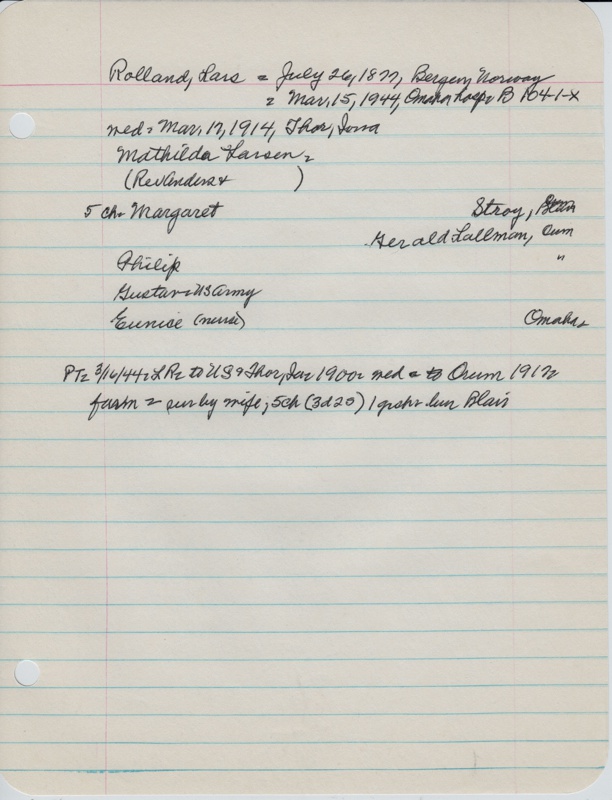 Rolland, Lars = July 26, 1877, Bergen, Norway
= Mar, 15, 1944, Omaha hosp = B 104-1-X
med = Mar, 17, 1914, Thor, Iowa
Mathilda Larsen =
(Rev Anders + )
5 ch = Margaret Stroy, Blair
Gerald Tallman, Oum
Philip "
Gustav = US Army
Eunice (nurse) Omaha =
PT = 3/16/44 = LR = to US + Thor, Ia = 1900 = med = to Orum 1917 =
farm = sur by wife, 5ch (3d 2s) 1 gch = bur Blair